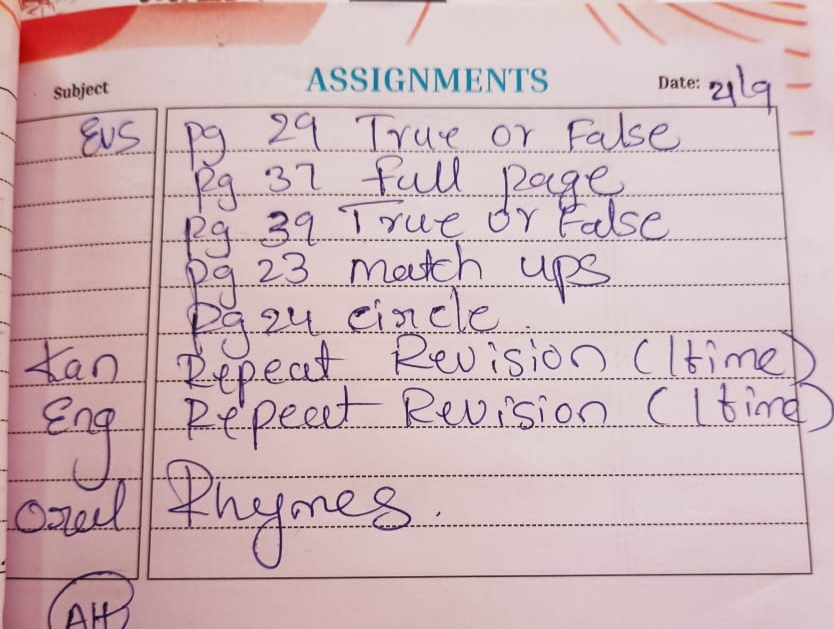 Subject ASSIGNMENTS Date: 21/9
EVS pg 29 True or False
Pg 37 full page
Pg 39 True or False
pg 23 match ups
pg 24 circle.
Kan Repeat Revision (1 time)
Eng Repeat Revision (1 time)
Oral Rhymes.
AH